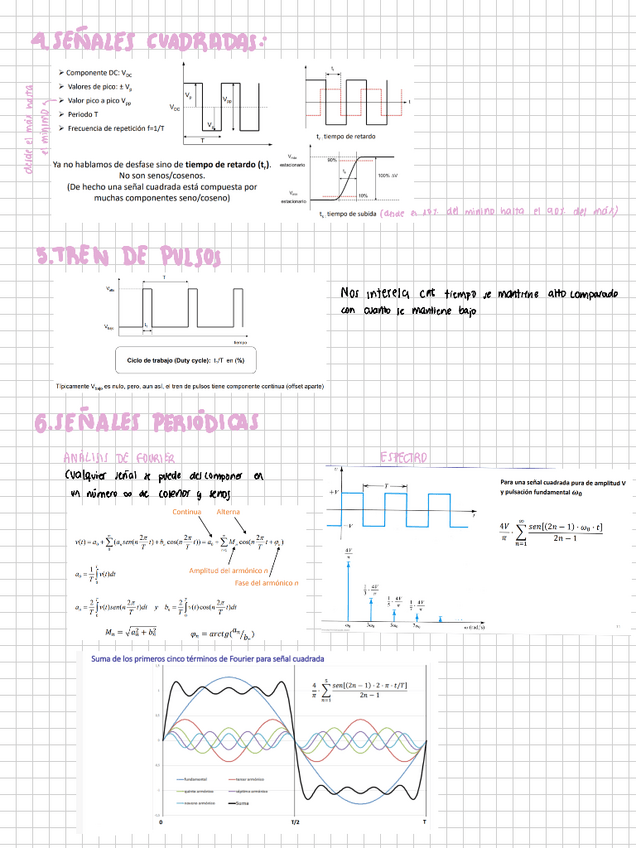 4. SEÑALES CUADRADAS:
➢ Componente DC: V_DC
➢ Valores de pico: ± V_p
➢ Valor pico a pico V_pp
➢ Periodo T
➢ Frecuencia de repetición f=1/T
desde el más hasta
el mínimo
V_p
V_pp
V_DC
T
t
t_r, tiempo de retardo
Ya no hablamos de desfase sino de tiempo de retardo (t_r).
No son senos/cosenos.
(De hecho una señal cuadrada está compuesta por
muchas componentes seno/coseno)
estacionario
90%
100% ΔV
10%
estacionario
t_s, tiempo de subida
5. TREN DE PULSOS
T
tiempo
Ciclo de trabajo (Duty cycle): t_/T en (%)
Típicamente V_bajo es nulo, pero, aun así, el tren de pulsos tiene componente continua (offset aparte)
tiempo se mantiene alto comparado
con cuanto se mantiene bajo
6. SEÑALES PERIÓDICAS
ANÁLISIS DE FOURIER
Cualquier señal se puede descomponer en
un número ∞ de cosenos y senos
Continua Alterna
v(t) = a₀ + ∑(aₙ sen(n 2π/T t) + bₙ cos(n 2π/T t)) = a₀ + ∑ Mₙ cos(n 2π/T t + φₙ)
Amplitud del armónico n
Fase del armónico n
a₀ = 1/T ∫ v(t)dt
aₙ = 2/T ∫ v(t)sen(n 2π/T t)dt y bₙ = 2/T ∫ v(t)cos(n 2π/T t)dt
Mₙ = √(aₙ² + bₙ²) φₙ = arctg(aₙ/bₙ)
ESPECTRO
+V
T
−V
t
Para una señal cuadrada pura de amplitud V
y pulsación fundamental ω₀
4V/π · ∑_{n=1}^{∞} sen[(2n − 1) · ω₀ · t] / (2n − 1)
Suma de los primeros cinco términos de Fourier para señal cuadrada
4/π · ∑_{n=1}^{5} sen[(2n − 1) · 2 · π · t/T] / (2n − 1)
fundamental
tercer armónico
quinto armónico
séptimo armónico
noveno armónico
Suma
0
T/2
T